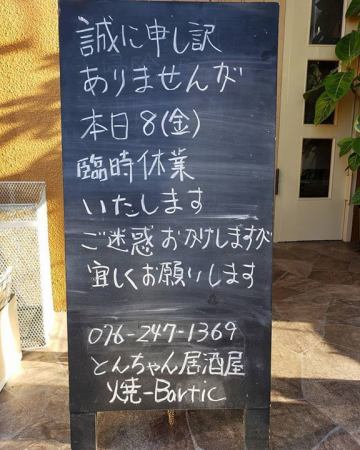 誠に申し訳
ありませんが
本日8(金)
臨時休業
いたします
ご迷惑おかけしますが
宜しくお願いします
076-247-1369
とんちゃん居酒屋
焼-Bartic